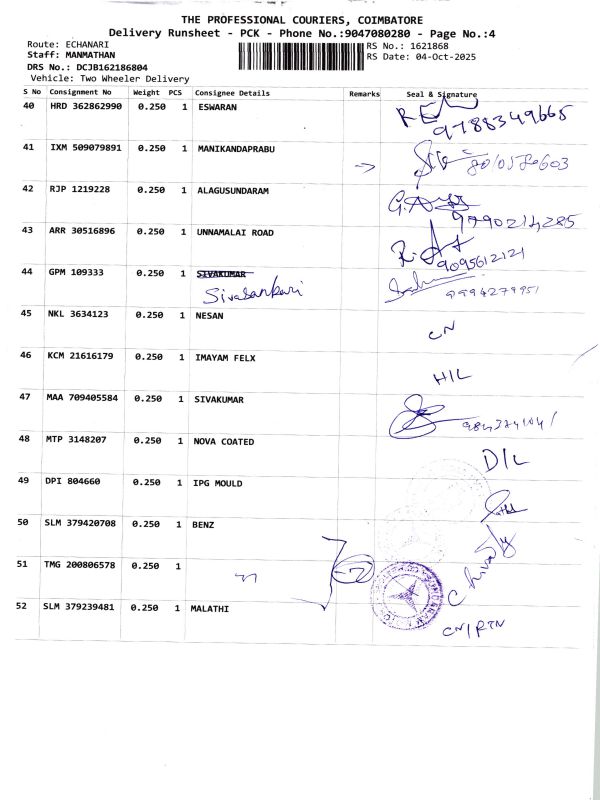 THE PROFESSIONAL COURIERS, COIMBATORE
Delivery Runsheet - PCK - Phone No.:9047080280 - Page No.:4
Route: ECHANARI RS No.: 1621868
Staff: MANMATHAN RS Date: 04-Oct-2025
DRS No.: DCJB162186804
Vehicle: Two Wheeler Delivery
S No Consignment No Weight PCS Consignee Details Remarks Seal & Signature
40 HRD 362862990 0.250 1 ESWARAN
9788349665
41 IXM 509079891 0.250 1 MANIKANDAPRABU
42 RJP 1219228 0.250 1 ALAGUSUNDARAM
9790214285
43 ARR 30516896 0.250 1 UNNAMALAI ROAD
9095612121
44 GPM 109333 0.250 1 SIVAKUMAR
Sivasankari 9994279951
45 NKL 3634123 0.250 1 NESAN
CN
46 KCM 21616179 0.250 1 IMAYAM FELX
H/L
47 MAA 709405584 0.250 1 SIVAKUMAR
48 MTP 3148207 0.250 1 NOVA COATED
D/L
49 DPI 804660 0.250 1 IPG MOULD
50 SLM 379420708 0.250 1 BENZ
51 TMG 200806578 0.250 1
52 SLM 379239481 0.250 1 MALATHI
CN/RTN